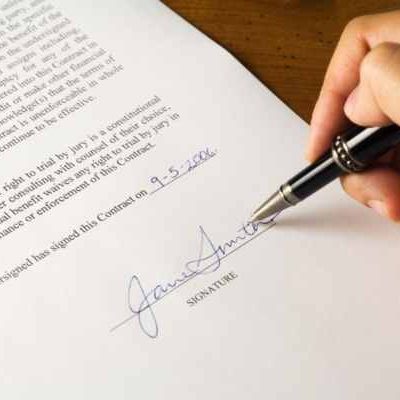 jury and
the specific
benefit of the
the undersigned
insight including,
uptcy for any of the
entered into this Contract in
edit or make other financial
cknowledge(s) that the terms of
tract is unenforceable in whole
continue to be effective.
right to trial by jury is a constitutional
er consulting with counsel of their choice,
al benefit waives any right to trial by jury in
mance or enforcement of this Contract.
ersigned has signed this Contract on 9-5-2006.
Jane Smith
SIGNATURE